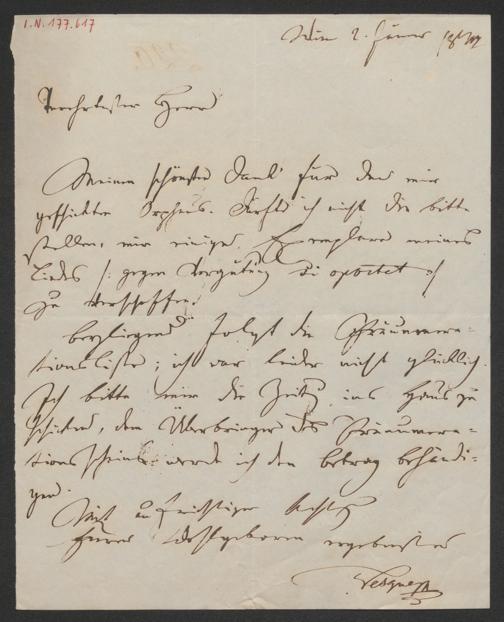 I.N. 177.617
Wien 2. Jänner
Verehrtester Herr
Meinen schönsten Dank für den mir
geschickten Orpheus. Dürfte ich nicht die bitte
stellen, mir einige Exemplare meines
Liedes /: gegen Vergütung si oportet :/
zu verschaffen.
beyliegend folgt die Pränumera-
tionsliste; ich war leider nicht glücklich.
Ich bitte mir die Zeitg ins Haus zu
schicken, dem Überbringer des Pränumera-
tions scheines werde ich den betrag behändi-
gen.
Mit aufrichtiger Achtg
Euer Wohlgeboren ergebenster
Vesque